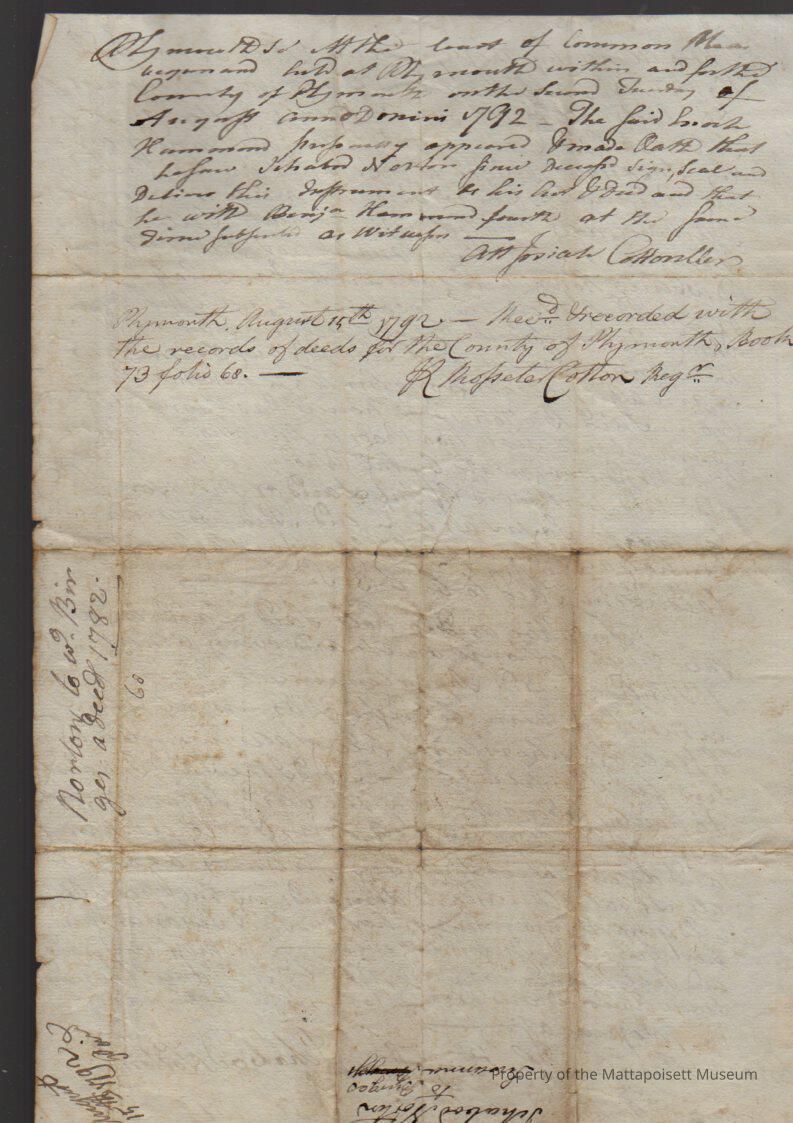 Plymouth Ss At the Court of Common Pleas
begun and held at Plymouth within and for the
County of Plymouth on the Second Tuesday of
August anno Domini 1792 – The said Enoch
Hammond personally appeared & made Oath that
he saw Ichabod Norton since deceased sign, seal and
Deliver this Instrument as his Act & Deed and that
he with Benjn Hammond fourth at the same
Time subscribed as Witnesses —
Att Josiah Cotton Cler
Plymouth, August 15th 1792. — Recd. & recorded with
the records of deeds for the County of Plymouth, Book
73 folio 68. —
Rosseter Cotton Regr.
Norton to w. Bin
ger a deed 1782.
60
August
15th 1792
Ichabod Norton
to
Property of the Mattapoisett Museum